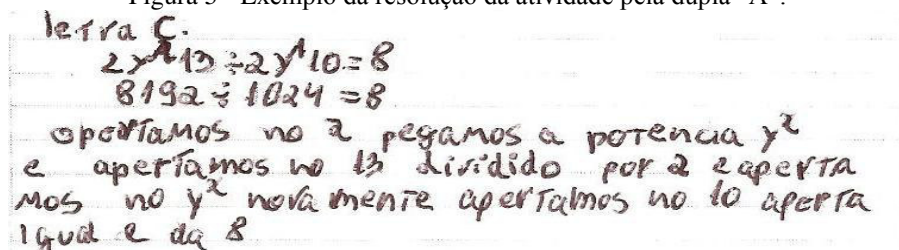 Figura 3 - Exemplo da resolução da atividade pela dupla "A".
letra C.
2y^x13 ÷ 2y^x10 = 8
8192 ÷ 1024 = 8
apertamos no 2 pegamos a potencia y^x
e apertamos no 13 dividido por 2 e aperta
mos no y^x nova mente apertalmos no 10 aperta
igual e da 8